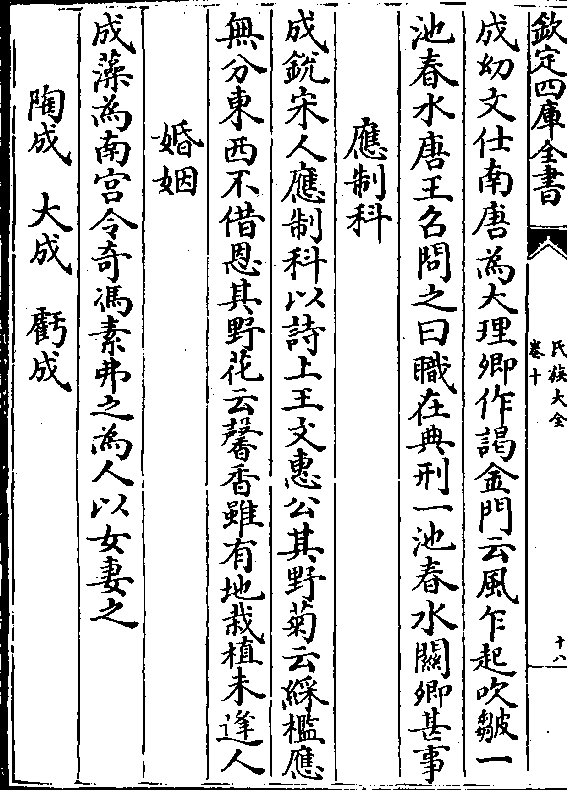 欽定四庫全書
氏族大全
卷十
十八
成幼文仕南唐為大理卿作謁金門云風乍起吹皺一
池春水唐王召問之曰職在典刑一池春水關卿甚事
應制科
成銳宋人應制科以詩上王文惠公其野菊云綵檻應
無分東西不借恩其野花云馨香雖有地栽植未逢人
婚姻
成藻為南宮令奇馮素弗之為人以女妻之
陶成 大成 虧成